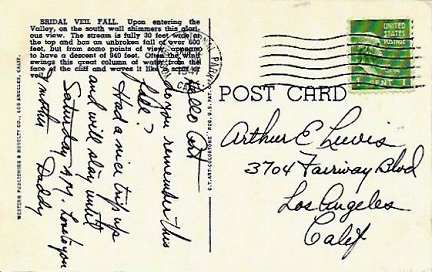 BRIDAL VEIL FALL. Upon entering the
Valley, on the south wall shimmers this glori-
ous view. The stream is fully 30 feet wide at
the top and has an unbroken fall of over 600
feet, but from some points of view, appears
to have a descent of 940 feet. Often the wind
swings this great column of water from the
face of the cliff and waves it like a scarf or
veil.
WESTERN PUBLISHING & NOVELTY CO., LOS ANGELES, CALIF.
Hello Art
Do you remember this
fall?
Had a nice trip up
and will stay until
Saturday A.M. Love to you
& mother Daddy
UNITED
STATES
POSTAGE
POST CARD
Arthur E Lewis
3704 Fairway Blvd
Los Angeles
Calif